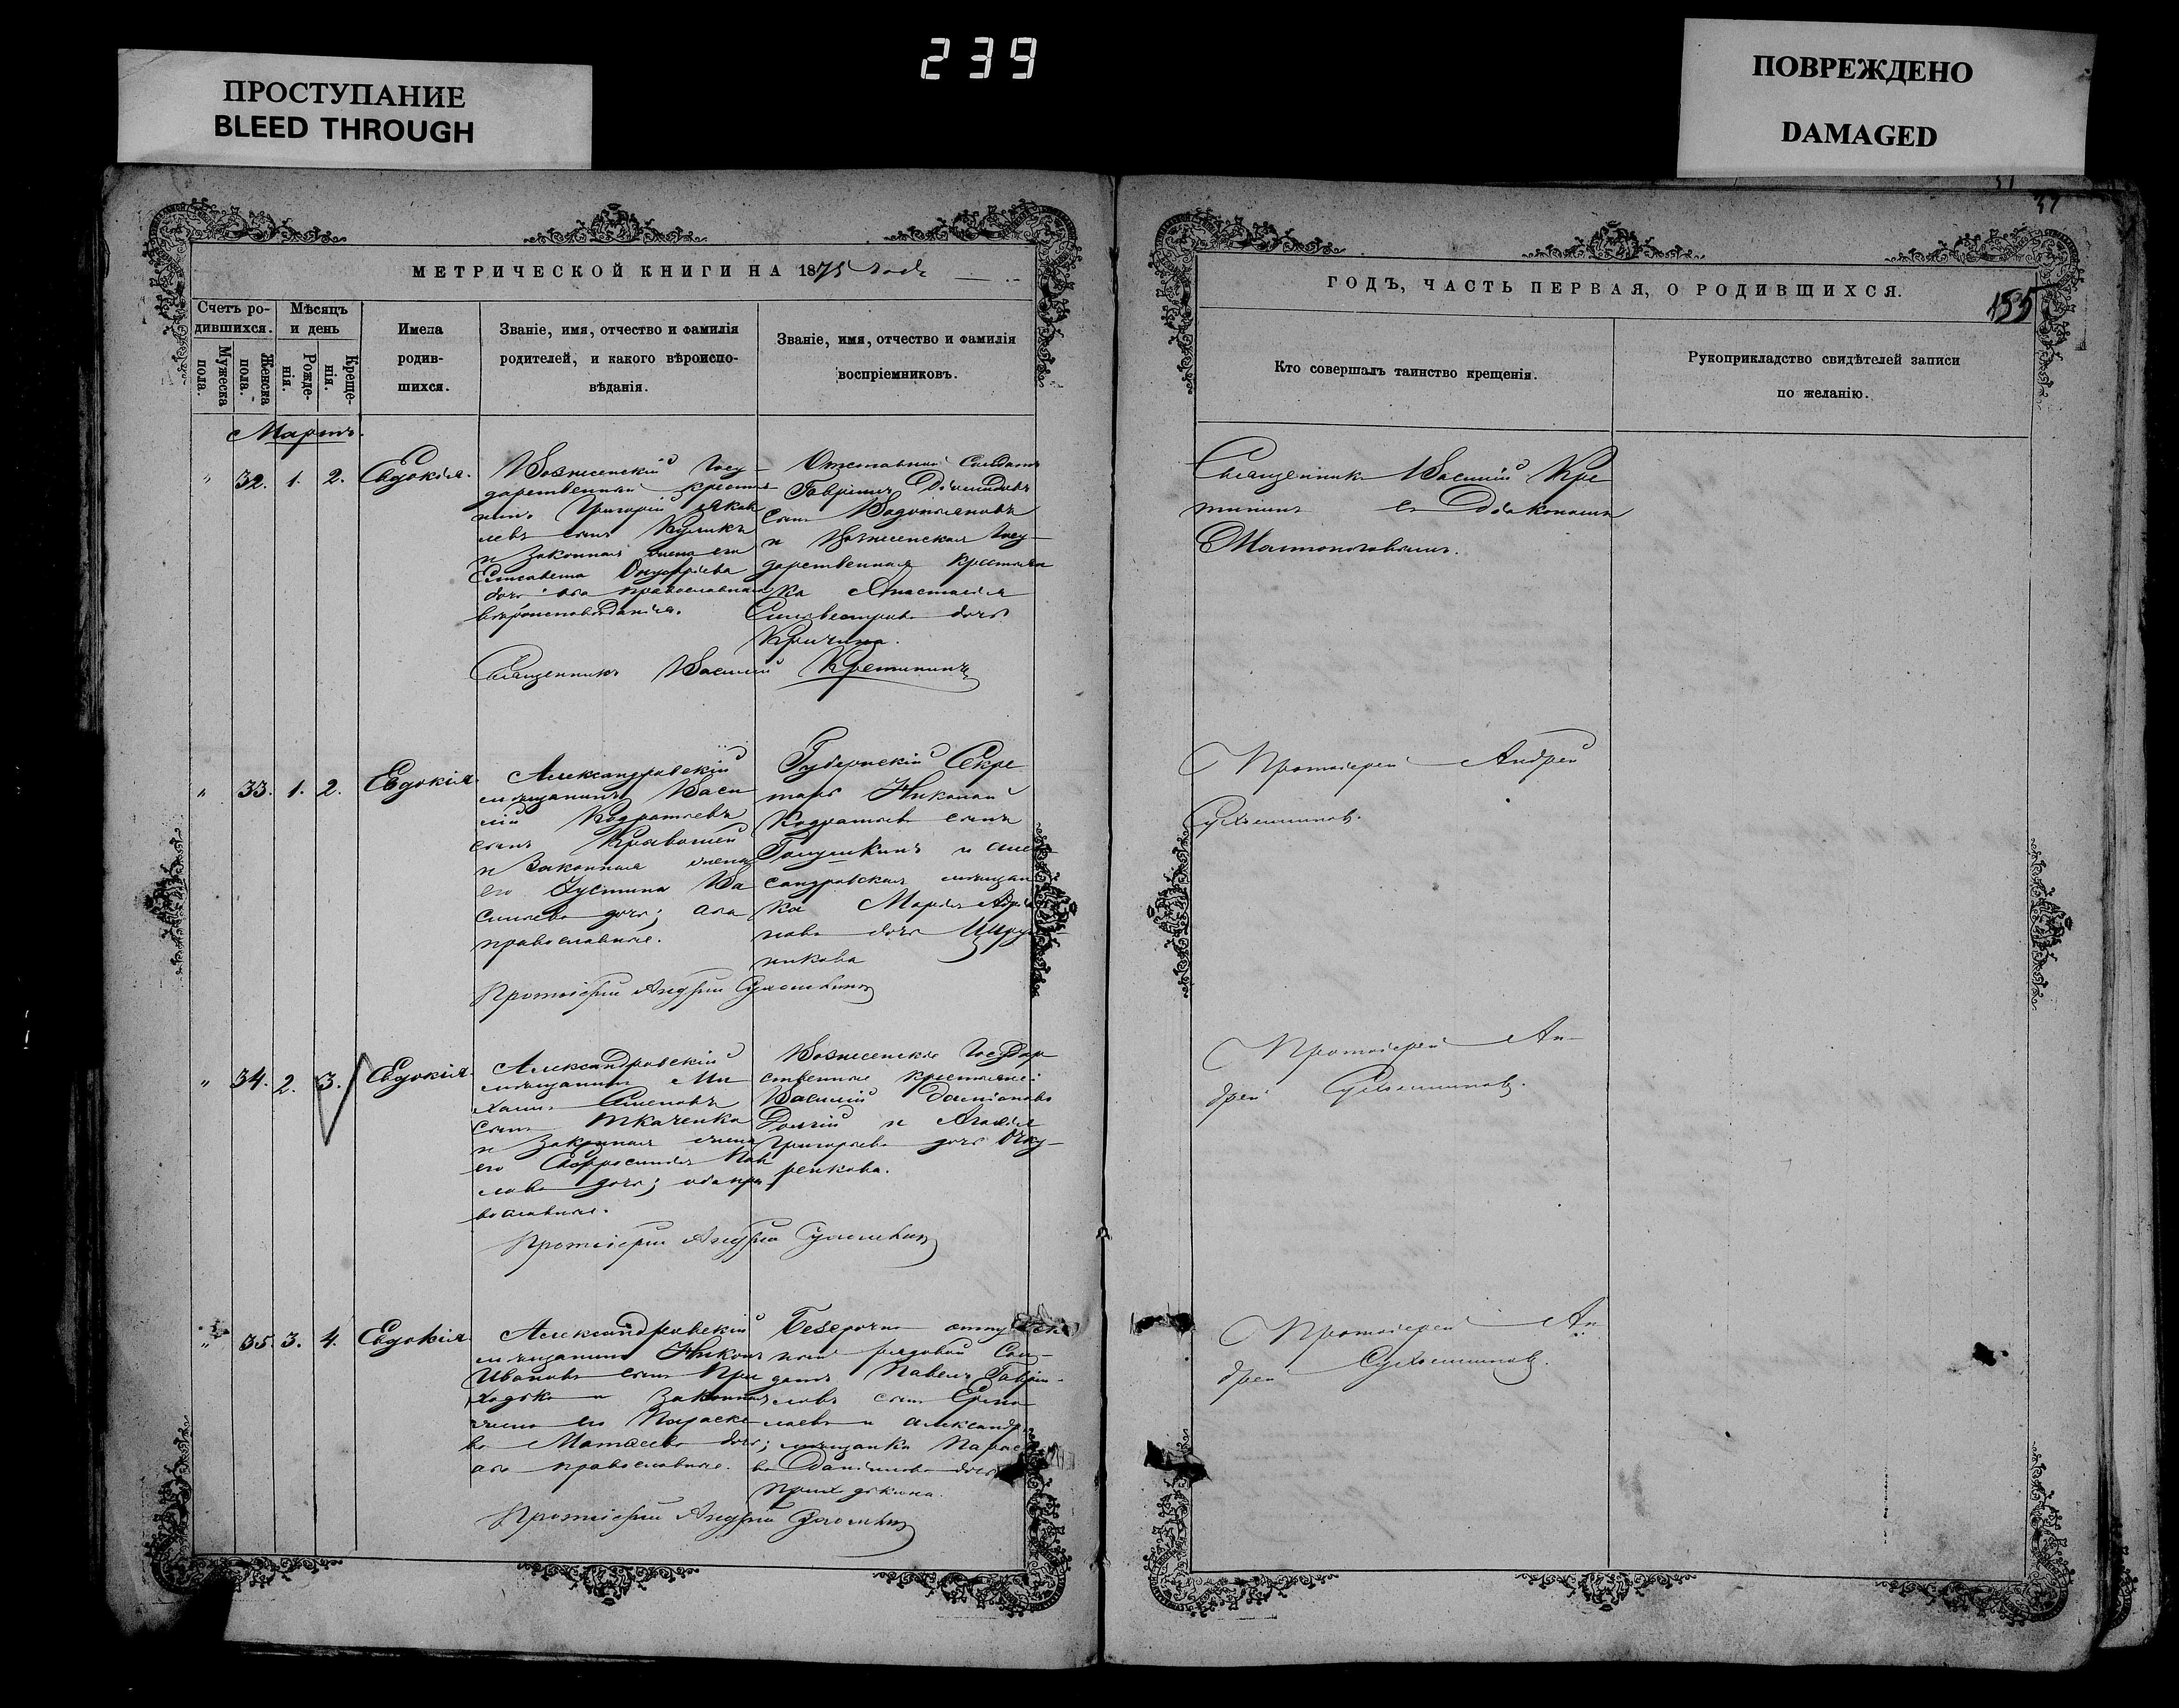 239
ПРОСТУПАНИЕ
BLEED THROUGH
ПОВРЕЖДЕНО
DAMAGED
МЕТРИЧЕСКОЙ КНИГИ НА 1875 года
Счетъ родившихся.
Мужеска пола.
Женска пола.
Мѣсяцъ и день
Рожденія.
Крещенія.
Имена
родив-
шихся.
Званіе, имя, отчество и фамилія
родителей, и какого вѣроиспо-
вѣданія.
Званіе, имя, отчество и фамилія
воспріемниковъ.
Мартъ.
" 32. 1. 2. Евдокія.
Вознесенскій Госу-
дарственный крестья
нинъ Григорій Яков
левъ сынъ Куликъ
и законная жена его
Елисавета Онуфріева
дочь оба православнаго
вѣроисповѣданія.
Отставной Солдатъ
Гавріилъ
сынъ Водопьяновъ
и Вознесенская Госу-
дарственная крестьян
ка Анастасія
Сильвестрова дочь
Священникъ Василій Кретининъ
" 33. 1. 2. Евдокія.
Александровскій
мѣщанинъ Васи
лій Кодратьевъ
сынъ
и законная жена
его Іустина Ва
сильева дочь; оба
православные.
Губернскій Секре
тарь Николай
Кодратьевъ сынъ
и Алек
сандровская мѣщан
ка Марія
дочь
никова
Протоіерей Андрей
" 34. 2. 3. Евдокія.
Александровскій
мѣщанинъ Ми
хаилъ Семеновъ
сынъ Ткаченко
и законная жена
его Евфросинія Пав
лова дочь; оба пра
вославные.
Вознесенскіе Государ
ственные крестьяне:
Василій Даміановъ
Долгій и Агафія
Григорьева дочь
ренкова.
Протоіерей Андрей
" 35. 3. 4. Евдокія
Александровскій
мѣщанинъ Никонъ
Ивановъ сынъ При
ходько и законная
жена его Параске
ва Матѳеева дочь;
оба православные.
Безсрочно отпускн
ной рядовой Сол-
датъ Павелъ Гаврі-
ловъ сынъ Ермо
лаевъ и Александр.
мѣщанка Параске
ва Даніилова дочь
Приходькина.
Протоіерей Андрей
37
ГОДЪ, ЧАСТЬ ПЕРВАЯ, О РОДИВШИХСЯ.
155
Кто совершалъ таинство крещенія.
Рукоприкладство свидѣтелей записи
по желанію.
Священникъ Василій Кре
тининъ съ Діакономъ
Протоіерей Андрей
Протоіерей Ан-
дрей
Протоіерей Ан
дрей